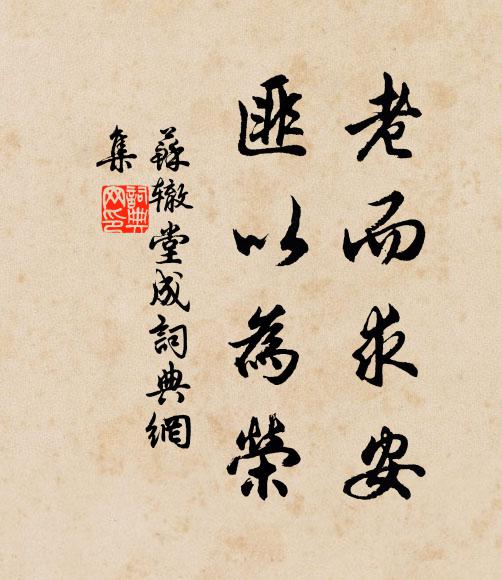 老而求安
匪以為榮
蘇辙堂成詞典網
集
詞典網印